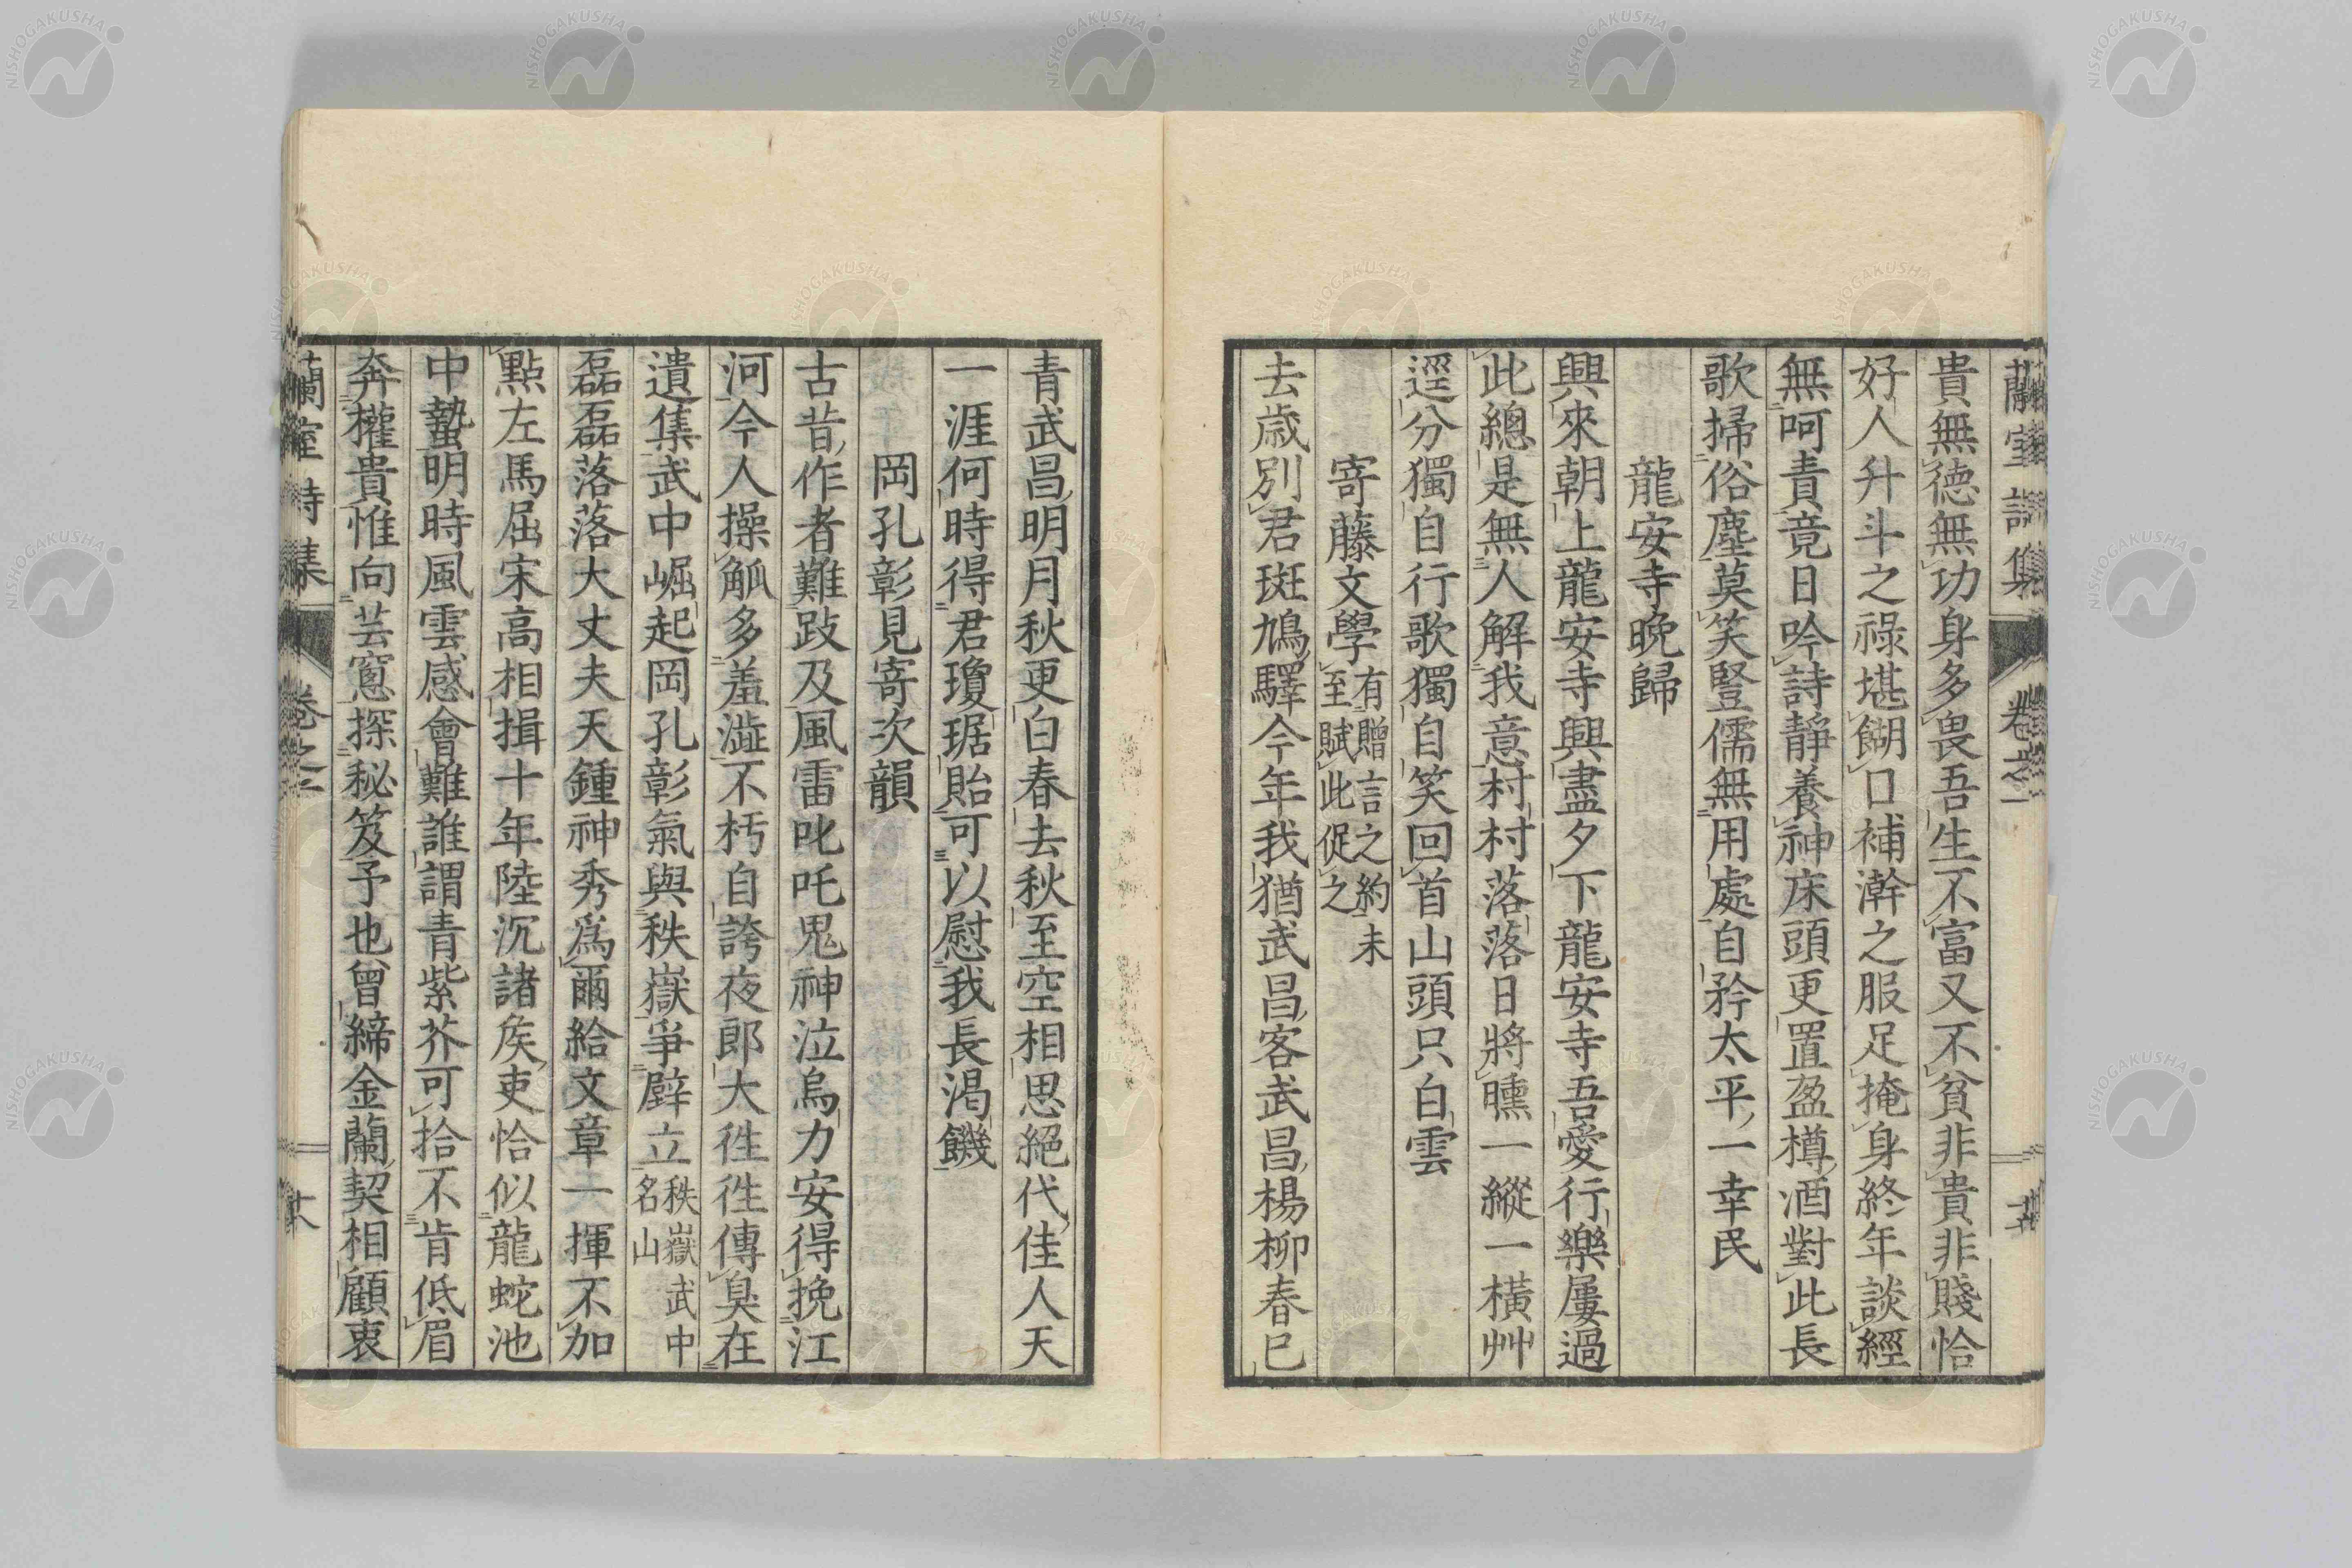 貴無德無功身多畏吾生不富又不貧非貴非賤恰
好人升斗之祿堪餬口補澣之服足掩身終年談經
無呵責竟日吟詩靜養神床頭更置盈樽酒對此長
歌掃俗塵莫笑豎儒無用處自矜太平一幸民
龍安寺晚歸
興來朝上龍安寺興盡夕下龍安寺吾愛行樂屢過
此總是無人解我意村村落落日將曛一縱一橫艸
逕分獨自行歌獨自笑回首山頭只白雲
寄藤文學有贈言之約未至賦此促之
去歲別君斑鳩驛今年我猶武昌客武昌楊柳春已
青武昌明月秋更白春去秋至空相思絕代佳人天
一涯何時得君瓊琚貽可以慰我長渴饑
岡孔彰見寄次韻
古昔作者難跂及風雷叱吒鬼神泣烏力安得挽江
河今人操觚多羞澁不朽自誇夜郎大徃徃傳臭在
遺集武中崛起岡孔彰氣與秩嶽爭壁立秩嶽武中名山
磊磊落落大丈夫天鍾神秀爲爾給文章一揮不加
點左馬屈宋高相揖十年陸沉諸矦吏恰似龍蛇池
中蟄明時風雲感會難誰謂青紫芥可拾不肯低眉
奔權貴惟向芸窻探秘笈予也曾締金蘭契相顧衷
蘭室詩集
卷之二